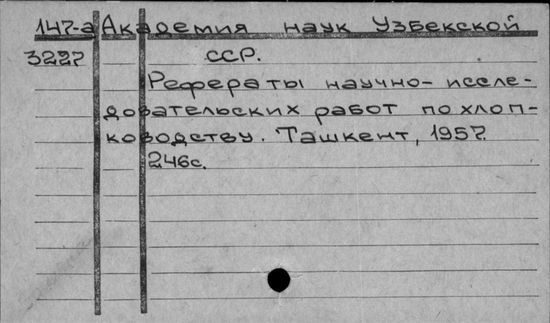 147-а Академия наук Узбекской
3227 ССР.
Рефераты научно-иссле-
довательских работ по хлоп-
ководству. Ташкент, 1957.
246с.